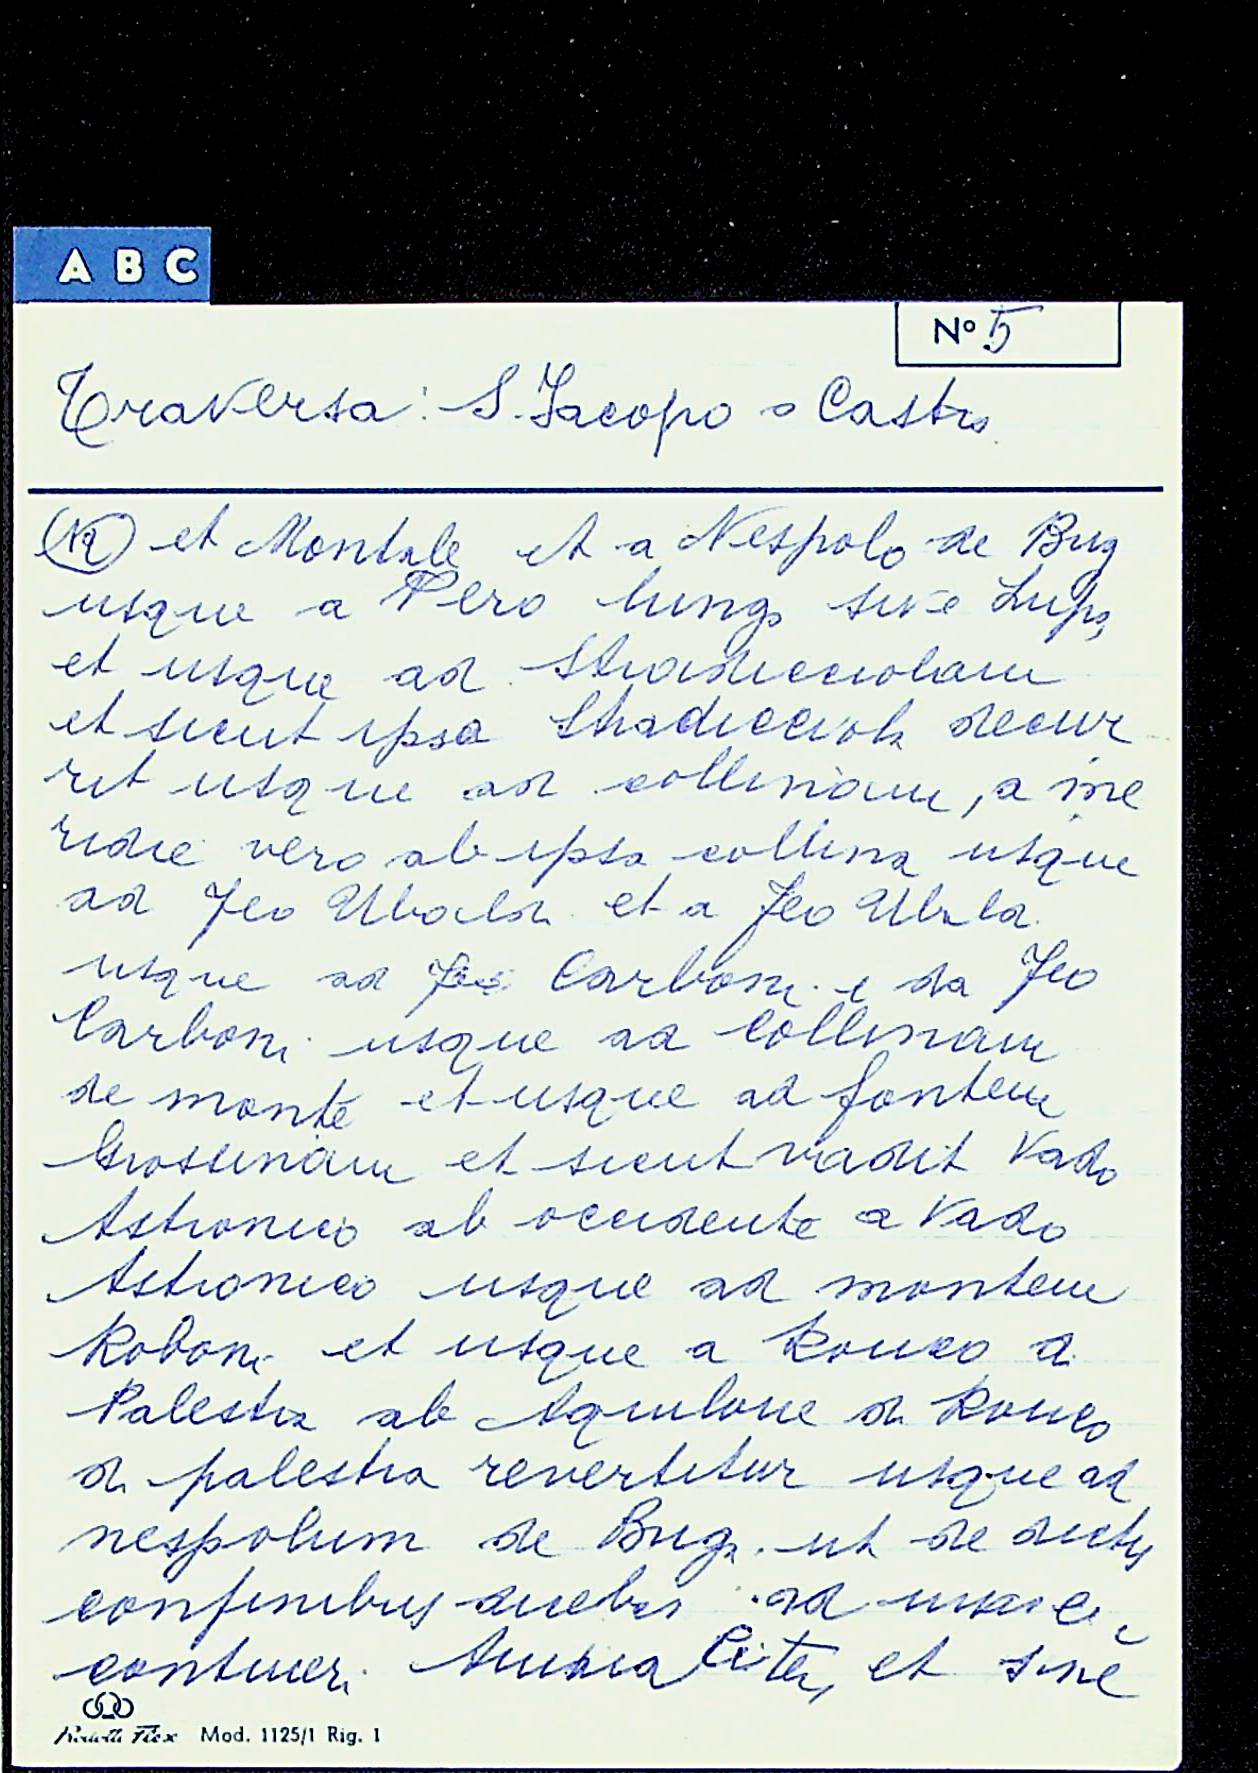 A B C
Nº 5
Traversa: S. Jacopo a Castro
et Montale et a Nespolo de Bug
usque a Pero lungo sive Lupo
et usque ad Stradicciolam
et sicut ipsa Stradicciola decur
rit usque ad collinam, a me
ridie vero ab ipsa collina usque
ad Feo Ubaldi et a Feo Ubalda
usque ad Feo Carboni e da Feo
Carboni usque ad Collinam
de monte et usque ad fontem
Grossinam et sicut vadit Vado
Astronico ab occidente a Vado
Astronico usque ad montem
Roboni et usque a Ronco di
Palestra ab Aquilone di Ronco
di palestra revertitur usque ad
nespolum de Bugi. ut de dictis
confinibus duebus ad
contineri et sine
Mod. 1125/1 Rig. 1